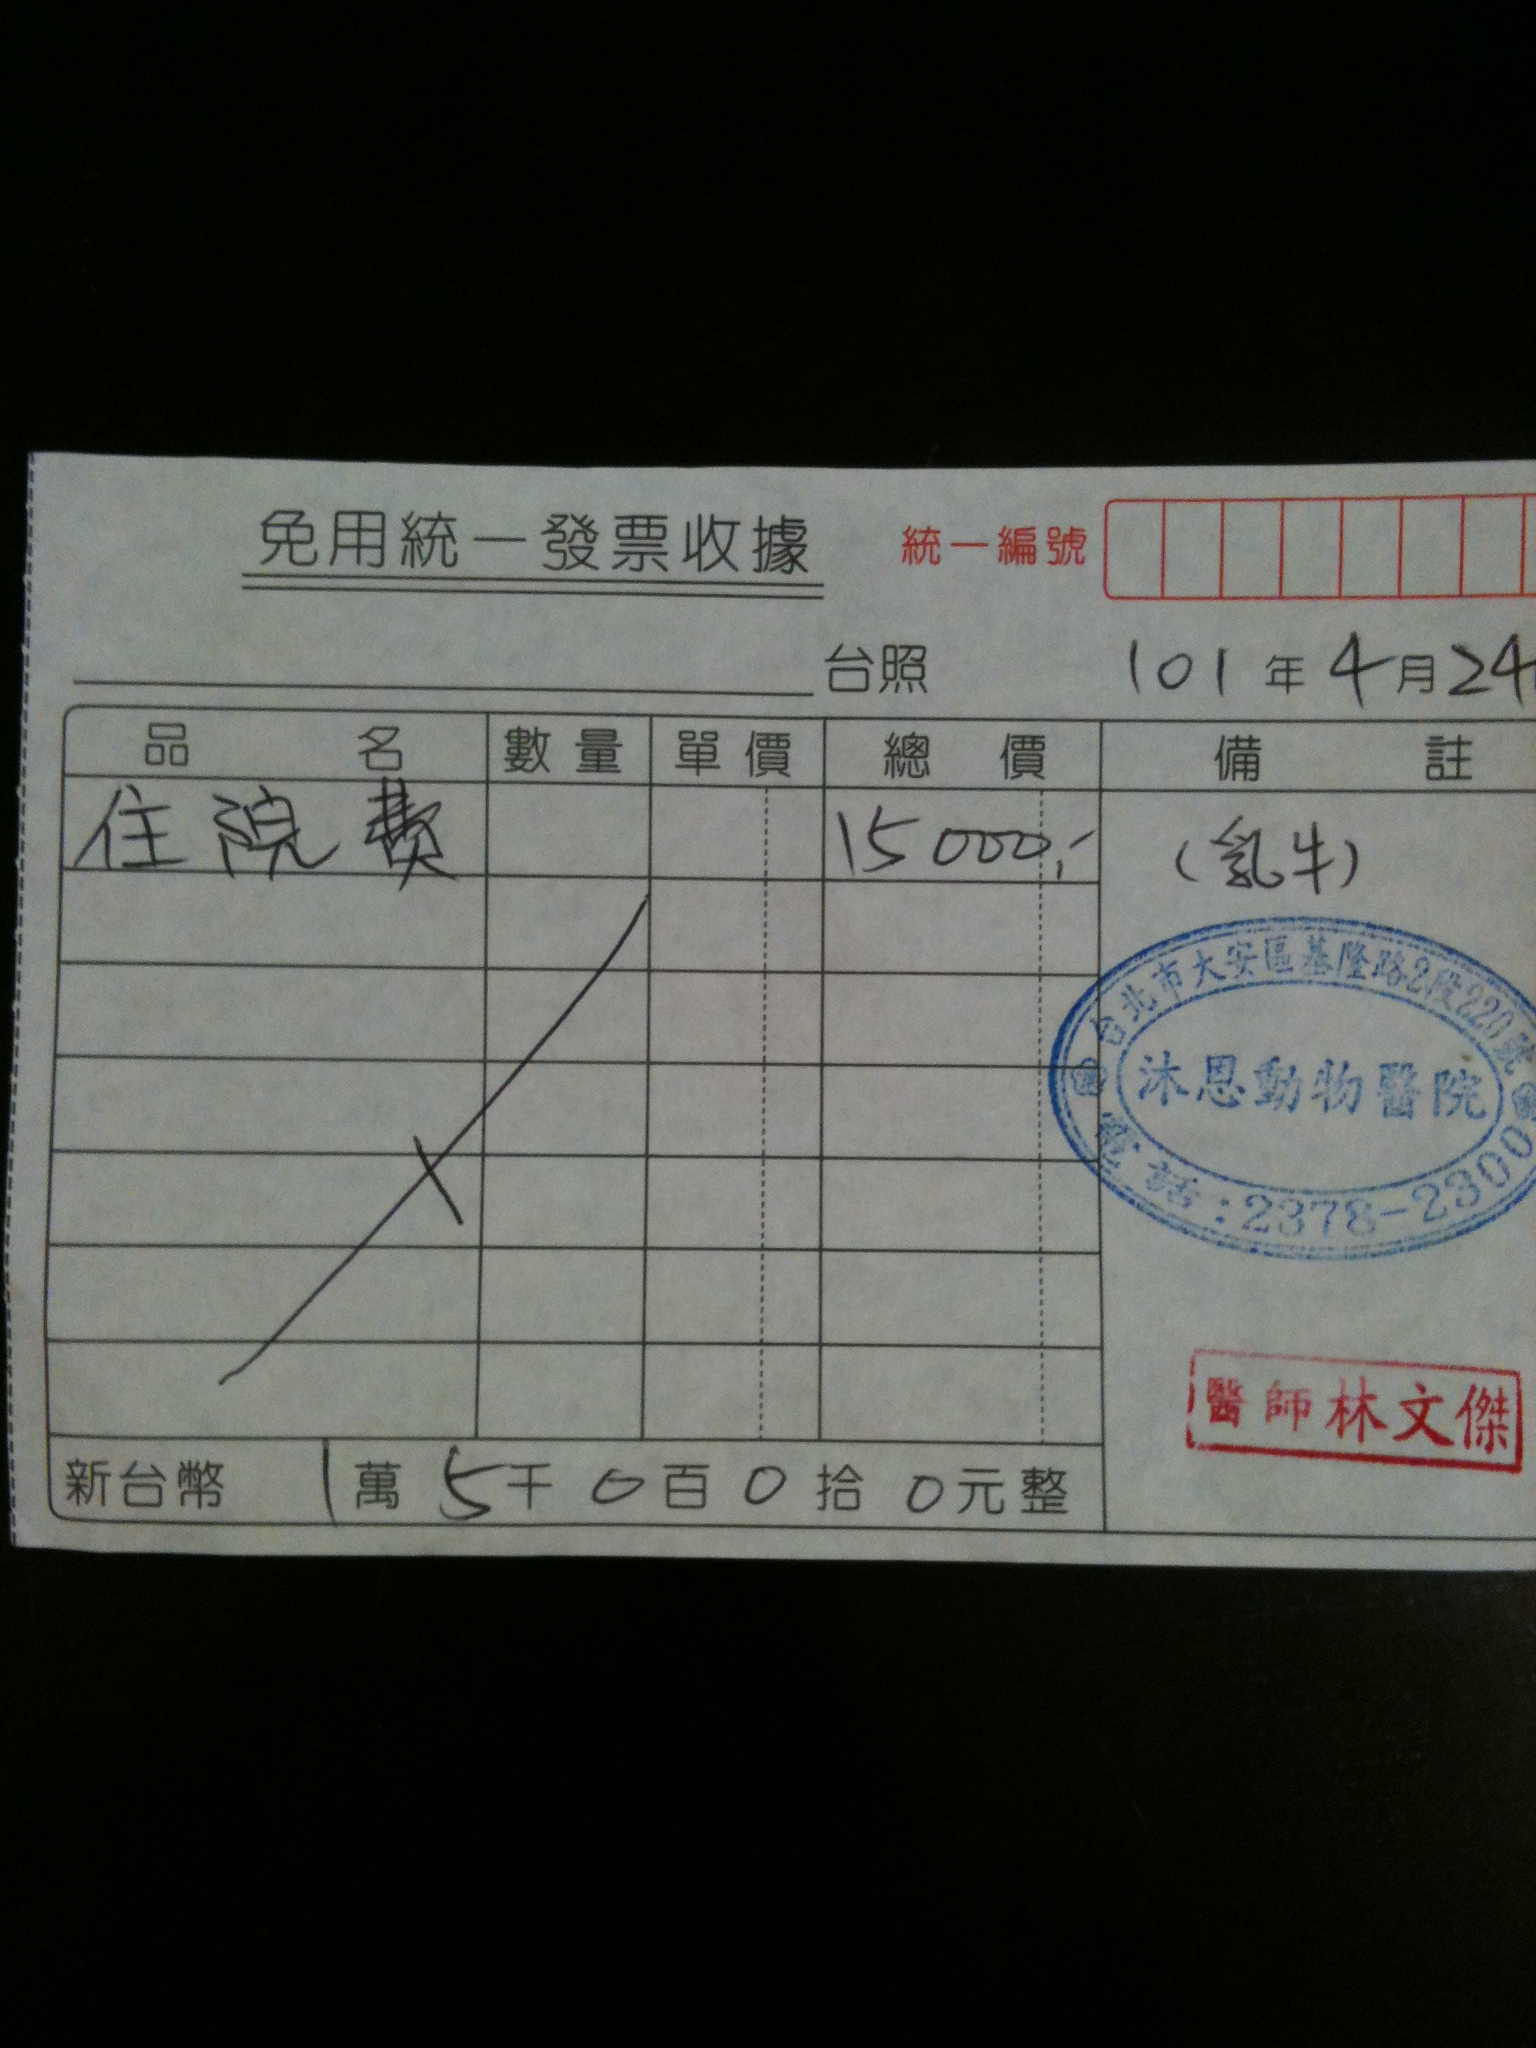 免用統一發票收據
統一編號
台照
101年4月24
品名 數量 單價 總價 備註
住院費 15000,- (乳牛)
台北市大安區基隆路2段220號
沐恩動物醫院
電話:2378-2300
醫師林文傑
新台幣 1萬5千0百0拾0元整